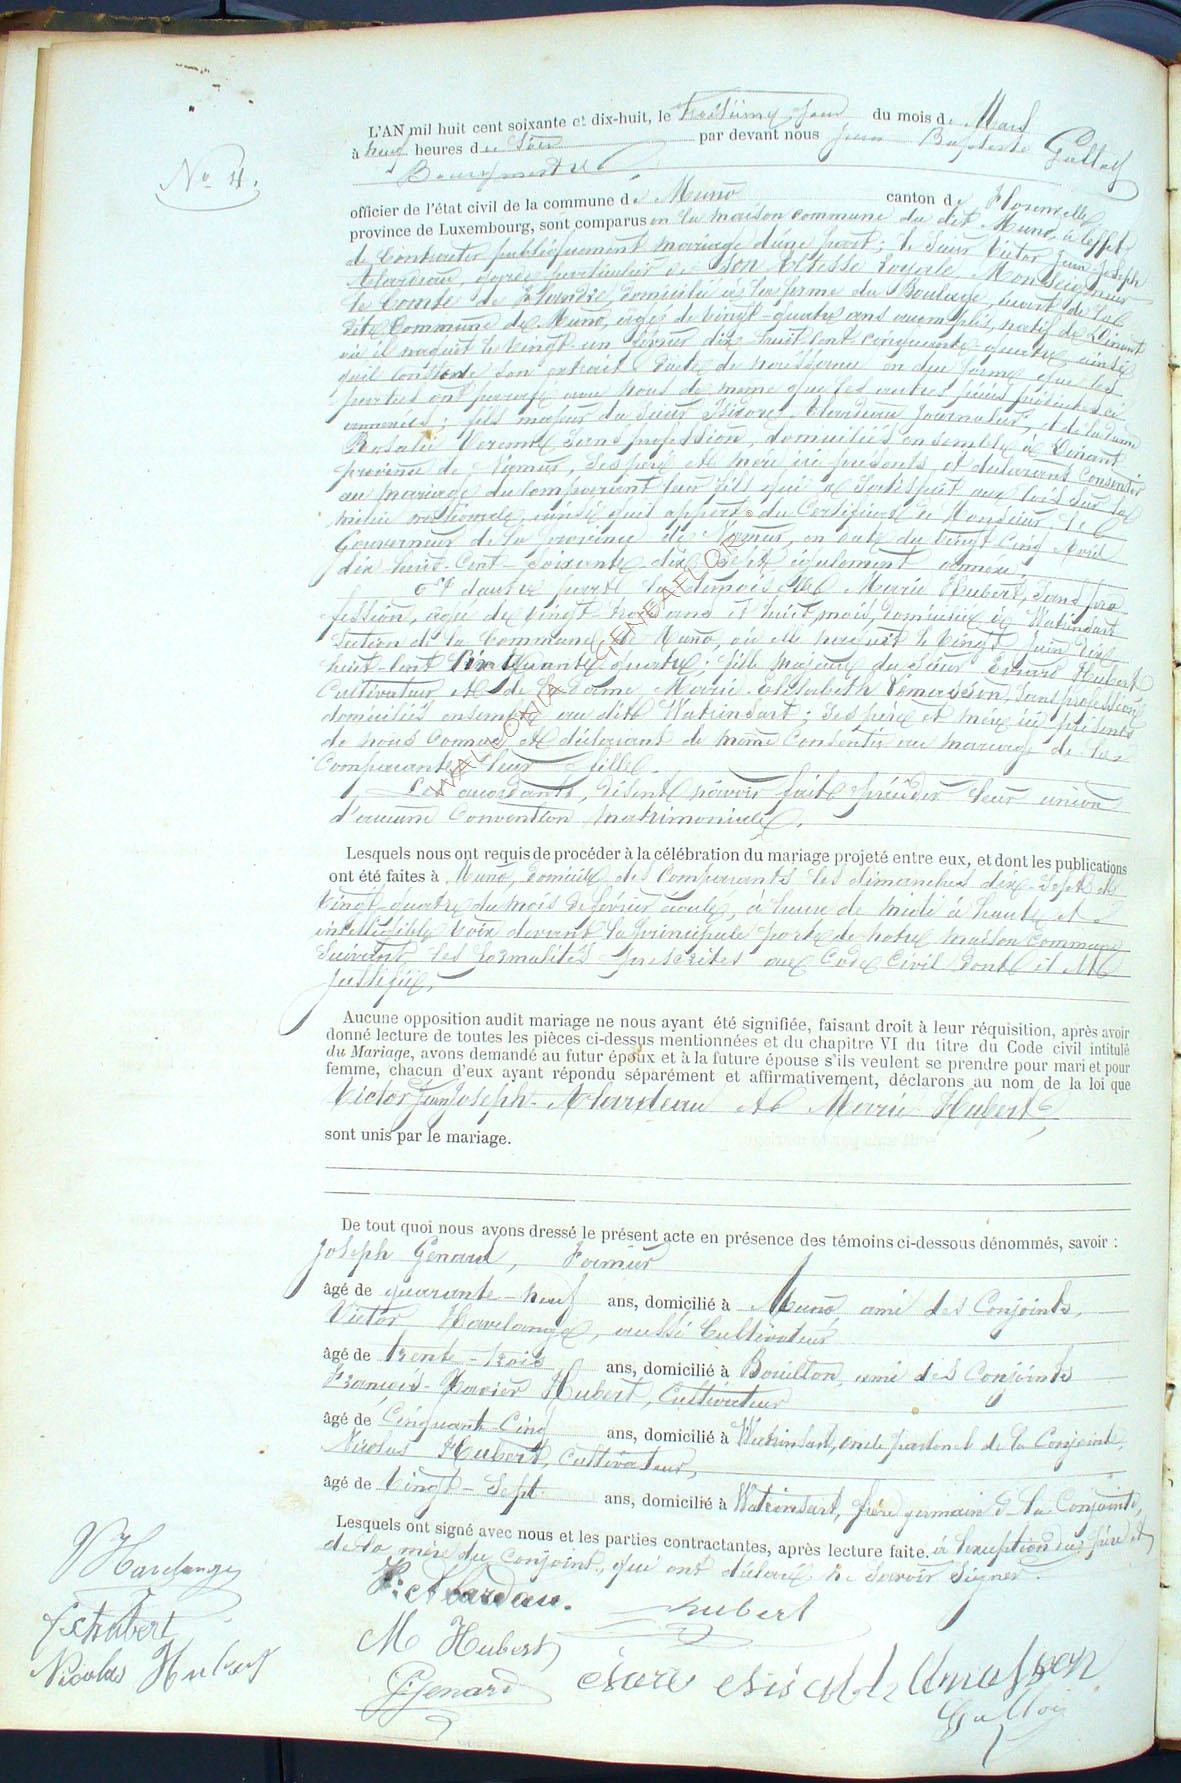 No 4.
L'AN mil huit cent soixante et dix-huit, le troisième jour du mois de Mars
à neuf heures du soir par devant nous Jean Baptiste Galloy
Bourgmestre
officier de l'état civil de la commune de Muno canton de Florenville
province de Luxembourg, sont comparus en la maison commune du dit Muno, à l'effet
de contracter publiquement mariage d'une part; le Sieur Victor Jean Joseph
Alardeau, garde particulier de Son Altesse Royale Monseigneur
le Comte de Flandre, domicilié à la ferme du Boulage, écart de la
dite Commune de Muno, âgé de vingt-quatre ans accomplis, natif de Dinant
où il naquit le vingt-un février dix huit cent cinquante quatre ainsi
qu'il conste de son extrait d'acte de naissance en due forme que les
parties ont paraphé avec nous de même que les autres pièces produites ci
annexées; fils majeur du Sieur Isidore Alardeau Journalier, et de la dame
Rosalie sans profession, domiciliés ensemble à Dinant
province de Namur, ses père et mère ici présents et déclarant consentir
au mariage du comparant leur fils qui a satisfait aux lois sur la
milice nationale, ainsi qu'il appert du Certificat de Monsieur le
Gouverneur de la Province de Namur, en date du vingt cinq Avril
dix huit Cent Soixante dix sept également annexé;
Et d'autre part la demoiselle Marie Hubert, sans pro
fession, âgée de vingt-trois ans et huit mois, domiciliée à Watrinsart
Section de la Commune de Muno, où elle naquit le vingt Juin dix
huit-Cent Cinquante quatre; fille majeure du Sieur Evrard Hubert
Cultivateur et de la Dame Marie Elisabeth Lemasson, sans profession
domiciliés ensemble au dit Watrinsart; ses père et mère ici présents
de nous connus et déclarant de même Consentir au mariage de la
Comparante leur fille.
Les accordants, disent n'avoir fait précéder leur union
d'aucune Convention Matrimoniale.
Lesquels nous ont requis de procéder à la célébration du mariage projeté entre eux, et dont les publications
ont été faites à Muno, domicile des Comparants les dimanches dix-sept et
vingt quatre du mois de février écoulé, à heure de midi à haute et
intelligible voix devant la principale porte de notre maison commune
suivant les formalités prescrites au Code Civil dont il est
justifié.
Aucune opposition audit mariage ne nous ayant été signifiée, faisant droit à leur réquisition, après avoir
donné lecture de toutes les pièces ci-dessus mentionnées et du chapitre VI du titre du Code civil intitulé
du Mariage, avons demandé au futur époux et à la future épouse s'ils veulent se prendre pour mari et pour
femme, chacun d'eux ayant répondu séparément et affirmativement, déclarons au nom de la loi que
Victor Jean Joseph Alardeau et Marie Hubert,
sont unis par le mariage.
De tout quoi nous avons dressé le présent acte en présence des témoins ci-dessous dénommés, savoir :
Joseph Genard, Fermier
âgé de quarante-neuf ans, domicilié à Muno ami des Conjoints,
Victor Havelange, aussi Cultivateur
âgé de trente-trois ans, domicilié à Bouillon, ami des Conjoints
François-Xavier Hubert, Cultivateur
âgé de Cinquante Cinq ans, domicilié à Watrinsart, oncle paternel de la Conjointe,
Nicolas Hubert, Cultivateur,
âgé de Vingt-Sept ans, domicilié à Watrinsart, frère germain de la Conjointe,
Lesquels ont signé avec nous et les parties contractantes, après lecture faite, à l'exception des père et
de la mère du Conjoint, qui ont déclaré ne savoir signer.
V: Alardeau. Hubert
M Hubert
J. Genard
Galloy
V Havelange
f x hubert
Nicolas Hubert
WALLONIA GENEAFLOR